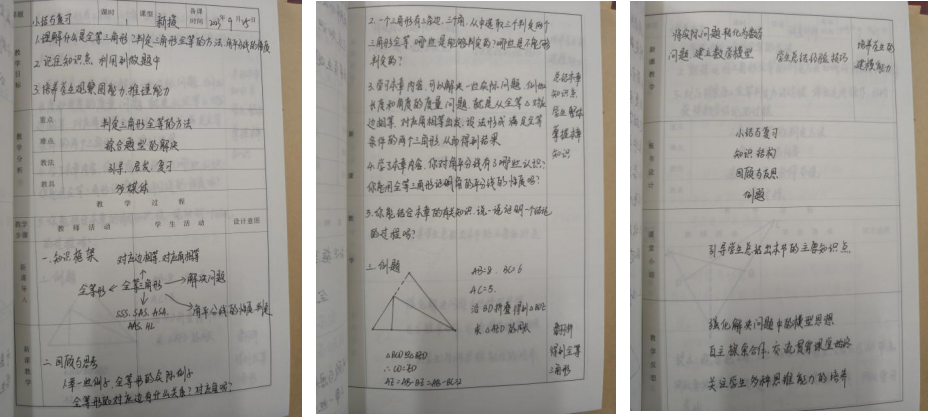 课题
小结与复习
课时
1
课型
新授
备课时间
教学目标
1.理解什么是全等三角形?判定三角形全等的方法.角平分线的性质
2.记住知识点,利用到做题中
3.培养学生观察图能力推理能力
教学分析
重点
判定三角形全等的方法
难点
综合题型的解决
教法
引导.启发.复习
教具
多媒体
教学过程
教学步骤
教师活动
学生活动
设计意图
一.知识框架
对应边相等.对应角相等
全等形
全等三角形
解决问题
SSS.SAS.ASA.
AAS.HL
角平分线的性质
新课教学
二.回顾与思考
1.举一些例子.全等形的实际例子
全等形的对应边有什么关系?对应角呢?
2.一个三角形有三条边,三个角,从中选取三个判定两个
三角形全等.哪些是能够判定的?哪些是不能够
判定的?
3.学习本章内容,可以解决一些实际问题,例如
长度和角度的度量问题,
边相等,对应角相等
条件的两个三角形.从而得到结果
总结本章
知识点
掌握本章
知识
4.学习本章内容,你对角平分线有了哪些认识?
你能用全等三角形证明角的平分线的性质吗?
5.你能结合本章的有关知识,说一说证明一个结论
的过程吗?
三.例题
AB=8.BC=6
AC=5.
沿BD折叠得到△BDE
求△AED的周长
△BCD≌△BED
∴CD=ED
AE=AB-BE=AB-BC=2
得到全等
三角形
新课教学
将实际问题转化为数学
问题.建立数学模型
学生总结经验.技巧
培养学生的
建模能力
板书设计
小结与复习
知识结构
回顾与反思
例题
课堂小结
引导学生总结出本节的主要知识点
教学反思
强化解决问题中的模型思想
自主探索合作.交流贯穿课堂始终
关注学生多种思维能力的培养